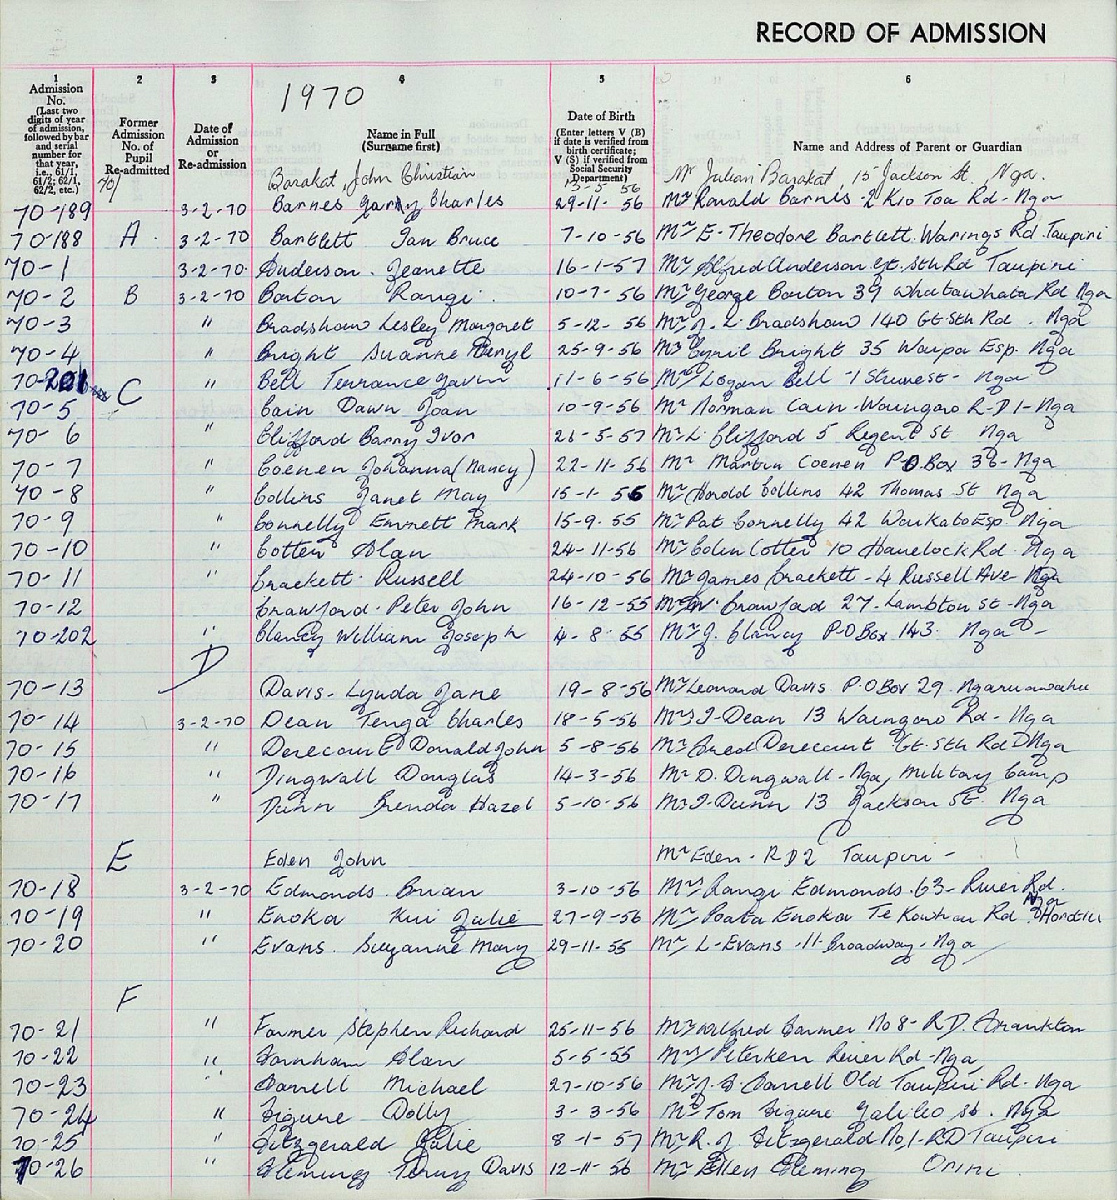 RECORD OF ADMISSION
1
Admission No.
(Last two digits of year of admission, followed by bar and serial number for that year, i.e., 61/1, 61/2; 62/1, 62/2, etc.)
2
Former Admission No. of Pupil Re-admitted
3
Date of Admission or Re-admission
4
1970
Name in Full
(Surname first)
5
Date of Birth
(Enter letters V (B) if date is verified from birth certificate; V (S) if verified from Social Security Department)
6
Name and Address of Parent or Guardian
70/ Barakat, John Christian 13-5-56 Mr Julian Barakat, 15 Jackson St. Nga.
70-189 3-2-70 Barnes Garry Charles 29-11-56 Mr Ronald Barnes - 2 Kio Toa Rd - Nga
70-188 A 3-2-70 Bartlett Ian Bruce 7-10-56 Mr E. Theodore Bartlett. Warings Rd. Taupiri
70-1 3-2-70 Anderson. Jeanette 16-1-57 Mr Alfred Anderson Gt. Sth Rd Taupiri
70-2 B 3-2-70 Barton Rangi. 10-7-56 Mr George Barton 39 Whatawhata Rd Nga
70-3 " Bradshaw Lesley Margaret 5-12-56 Mr J. L. Bradshaw 140 Gt Sth Rd. Nga
70-4 " Bright Suanne Beryl 25-9-56 Mr Cyril Bright 35 Waipa Esp. Nga
70-201 C " Bell Terrance Gavin 11-6-56 Mr Logan Bell - 1 - Nga
70-5 " Cain Dawn Joan 10-9-56 Mr Norman Cain - Waingaro R-D 1 - Nga
70-6 " Clifford Barry Ivor 21-5-57 Mr L. Clifford 5 Regent St Nga
70-7 " Coenen Johanna (Nancy) 22-11-56 Mr Martin Coenen P.O. Box 36 - Nga
70-8 " Collins Janet May 15-1-56 Mr Harold Collins 42 Thomas St Nga
70-9 " Connelly Emmett Mark 15-9-55 Mr Pat Connelly 42 Waikato Esp. Nga
70-10 " Cotter Alan 24-11-56 Mr Colin Cotter 10 Havelock Rd. Nga
70-11 " Crackett. Russell 24-10-56 Mr James Crackett - 4 Russell Ave Nga
70-12 Crawford. Peter John 16-12-55 Mr W. Crawford 27. Lambton St - Nga
70-202 " Clancy William Joseph 4-8-55 Mr J. Clancy P-O Box 143. Nga -
D
70-13 Davis. Lynda Jane 19-8-56 Mr Leonard Davis P.O Box 29. Ngaruawahia
70-14 3-2-70 Dean Tenga Charles 18-5-56 Mr I. Dean 13 Waingaro Rd - Nga
70-15 " Derecourt Donald John 5-8-56 Mr Fred Derecourt Gt. Sth Rd Nga
70-16 " Dingwall Douglas 14-3-56 Mr D. Dingwall - Nga, Military Camp
70-17 " Dunn Brenda Hazel 5-10-56 Mr I. Dunn 13 Jackson St. Nga
E Eden John Mr Eden - R D 2 Taupiri -
70-18 3-2-70 Edmonds. Brian 3-10-56 Mr Rangi Edmonds. 63 - River Rd. Nga
70-19 " Enoka Kui Julie 27-9-56 Mr Paata Enoka Te Kowhai Rd Horotiu
70-20 " Evans. Suzanne Mary 29-11-55 Mr L. Evans - 11 - Broadway - Nga
F
70-21 " Farmer Stephen Richard 25-11-56 Mr Wilfred Farmer No 8 - R.D. Frankton
70-22 " Farnham Alan 5-5-55 Mr Peterken River Rd - Nga
70-23 " Farrell Michael 27-10-56 Mr J. Farrell Old Taupiri Rd. Nga
70-24 " Figure Dolly 3-3-56 Mr Tom Figure Galileo St. Nga
70-25 " Fitzgerald Julie 8-1-57 Mr R. J. Fitzgerald No 1 - RD Taupiri
70-26 " Fleming Terry Davis 12-11-56 Mr Ellen Fleming Orini